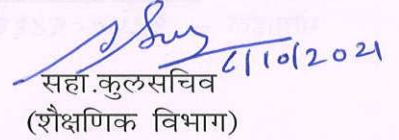 /10/2021
सहा.कुलसचिव
(शैक्षणिक विभाग)